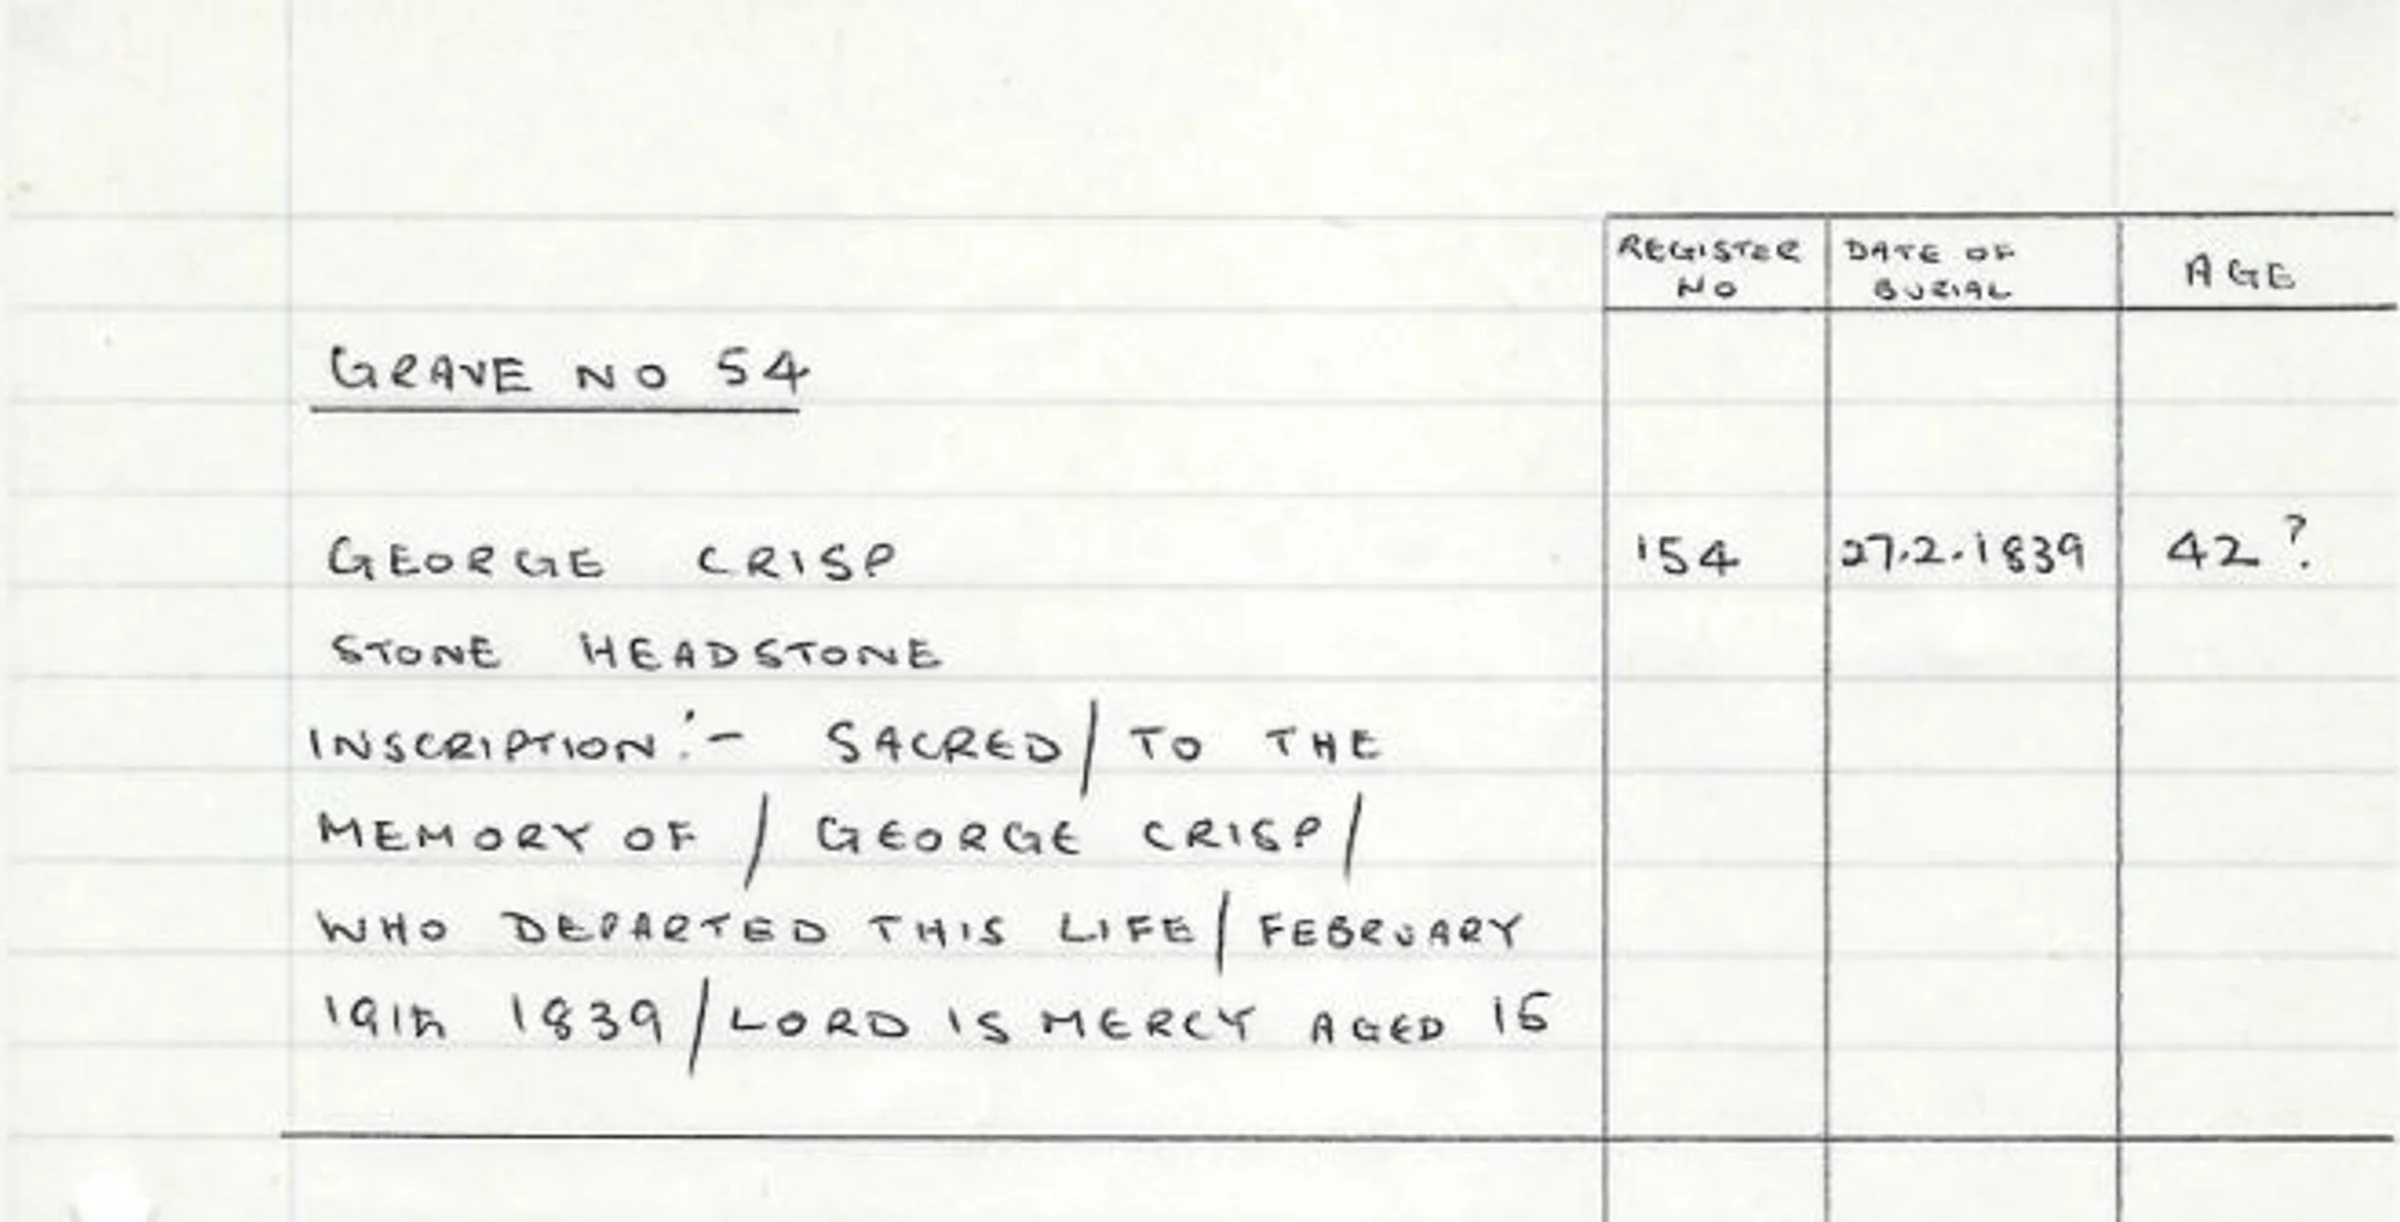 REGISTER NO DATE OF BURIAL AGE
GRAVE NO 54
GEORGE CRISP 154 27.2.1839 42?
STONE HEADSTONE
INSCRIPTION:- SACRED/ TO THE
MEMORY OF / GEORGE CRISP/
WHO DEPARTED THIS LIFE/ FEBRUARY
19th 1839/ LORD IS MERCY AGED 15